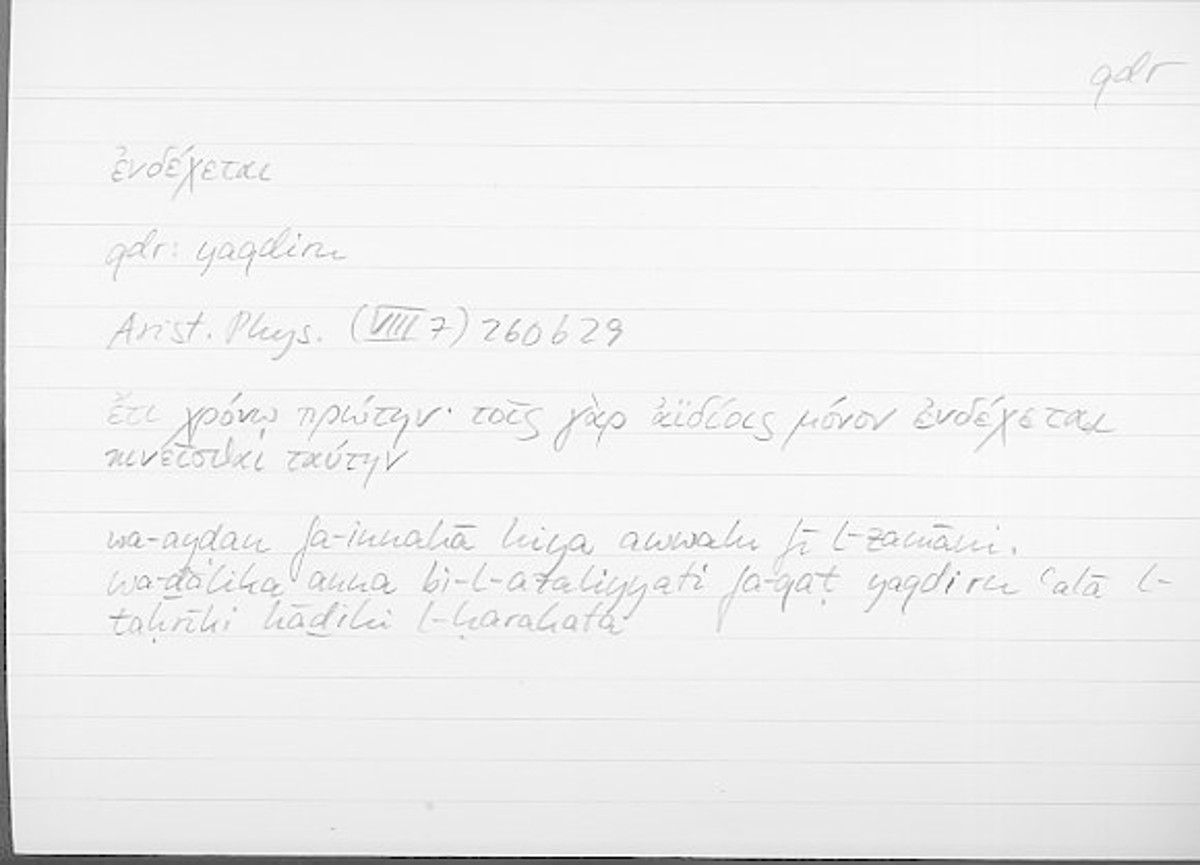 qdr
ἐνδέχεται
qdr: yaqdiru
Arist. Phys. (VIII 7) 260b29
ἔτι χρόνῳ πρώτην· τοῖς γὰρ ἀϊδίοις μόνον ἐνδέχεται
κινεῖσθαι ταύτην
wa-ayḍan fa-innahā hiya awwalu fī l-zamāni.
wa-ḏālika anna bi-l-azaliyyati fa-qaṭ yaqdiru ʿalā l-
taḥrīki hāḏihi l-ḥarakata